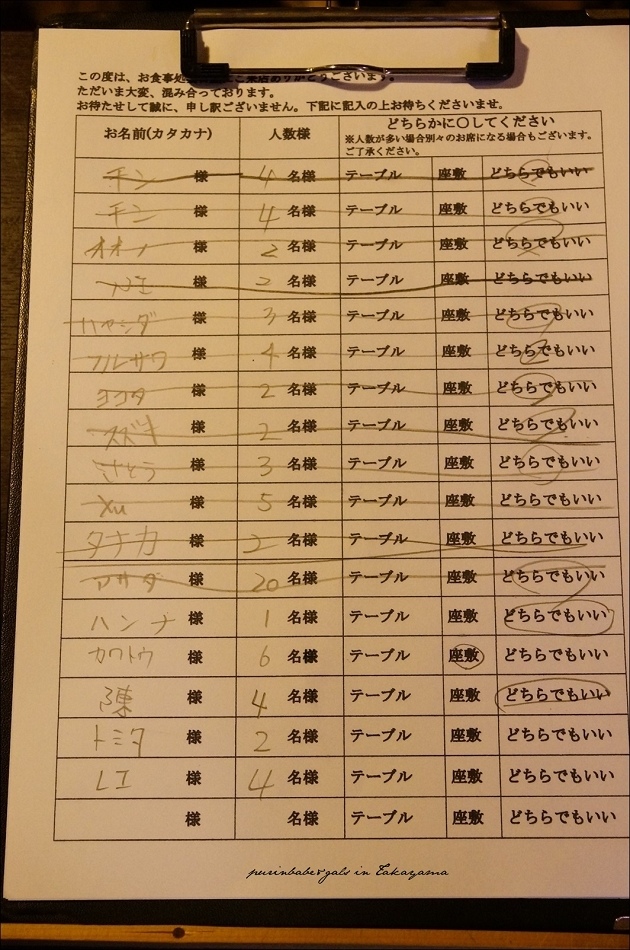 この度は、お食事処
ただいま大変、混み合っております。
お待たせして誠に、申し訳ございません。下記に記入の上お待ちくださいませ。
お名前(カタカナ) 人数様 どちらかに〇してください
※人数が多い場合別々のお席になる場合もございます。
ご了承ください。
チン 様 4 名様 テーブル 座敷 どちらでもいい
チン 様 4 名様 テーブル 座敷 どちらでもいい
様 2 名様 テーブル 座敷 どちらでもいい
様 2 名様 テーブル 座敷 どちらでもいい
様 3 名様 テーブル 座敷 どちらでもいい
フルサワ 様 4 名様 テーブル 座敷 どちらでもいい
ヨコタ 様 2 名様 テーブル 座敷 どちらでもいい
スズキ 様 2 名様 テーブル 座敷 どちらでもいい
さとう 様 3 名様 テーブル 座敷 どちらでもいい
Xu 様 5 名様 テーブル 座敷 どちらでもいい
タナカ 様 2 名様 テーブル 座敷 どちらでもいい
アサダ 様 20 名様 テーブル 座敷 どちらでもいい
ハンナ 様 1 名様 テーブル 座敷 どちらでもいい
カワトウ 様 6 名様 テーブル 座敷 どちらでもいい
陳 様 4 名様 テーブル 座敷 どちらでもいい
トミタ 様 2 名様 テーブル 座敷 どちらでもいい
LI 様 4 名様 テーブル 座敷 どちらでもいい
様 名様 テーブル 座敷 どちらでもいい
purinbabe&gals in Takayama